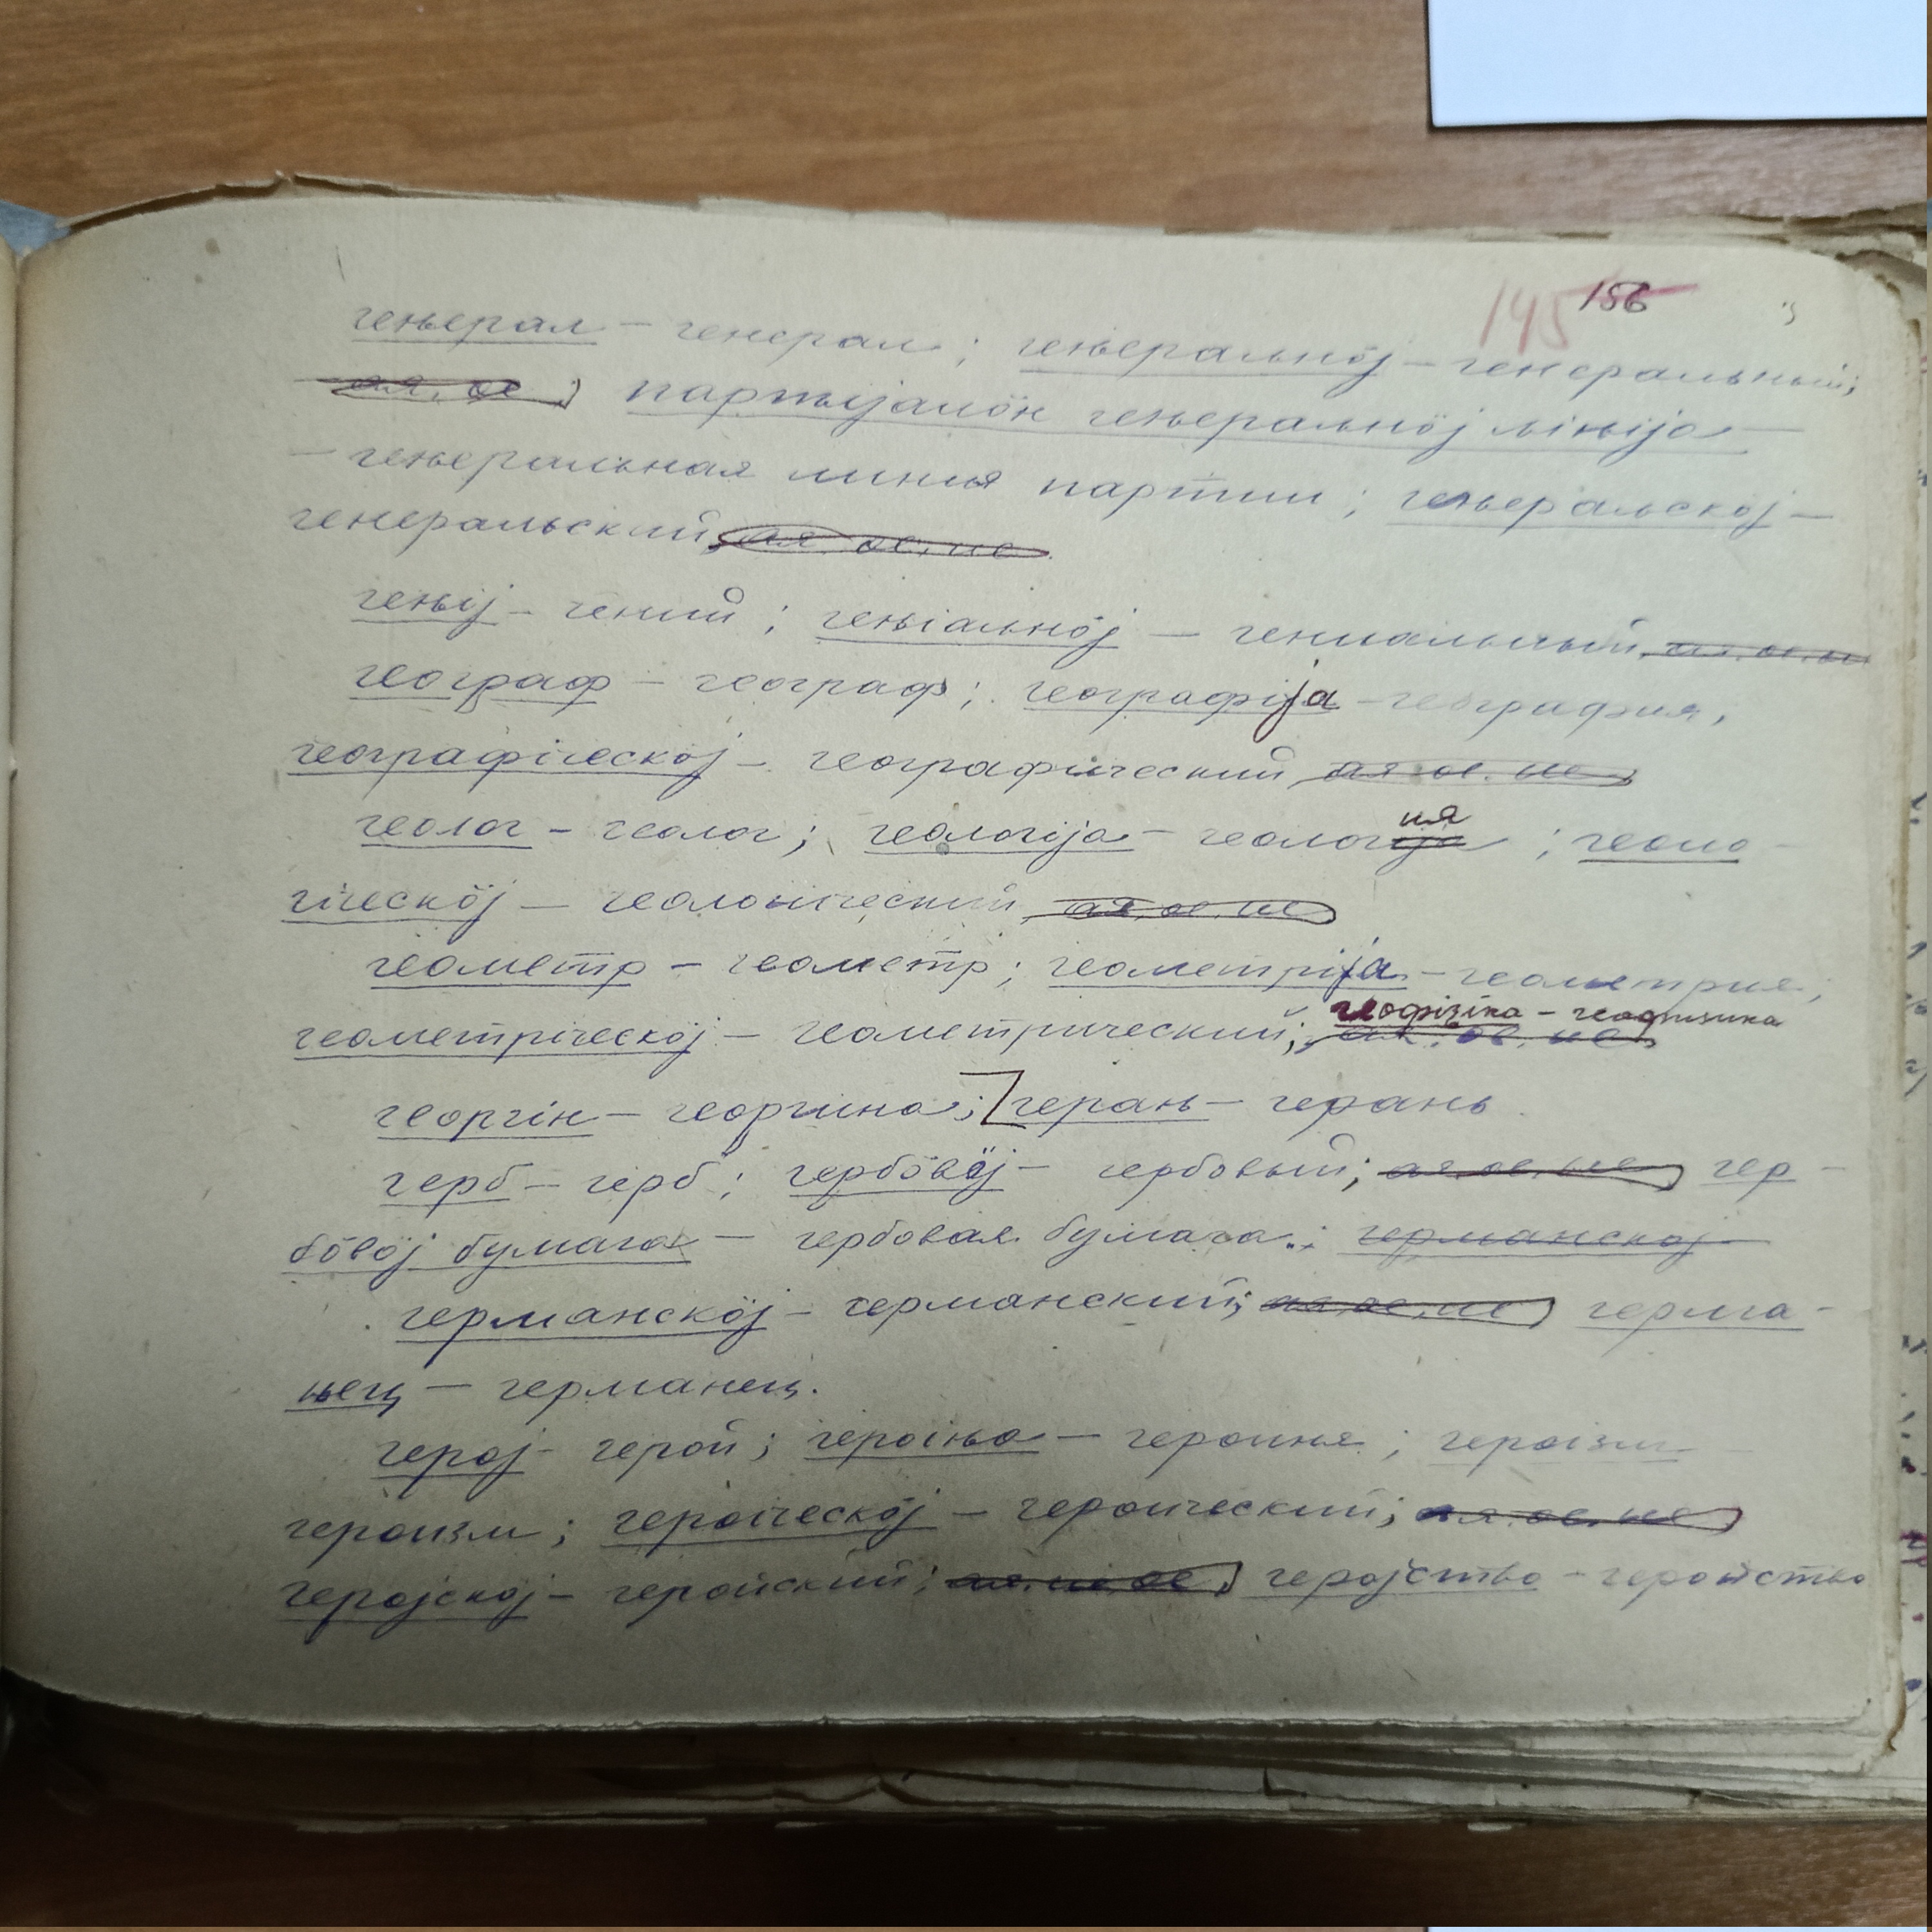 145 156
геԋерал – генерал; геԋеральнӧј – генеральный;
ая, ое; партыјалӧн геԋеральнӧј ліԋіја –
– генеральная линия партии; геԋеральскӧј –
генеральский, ая, ое, ие.
геԋіј – гений; геԋіальнӧј – гениальный, ая, ое, ы
географ – географ; географіја – география,
географіческӧј – географический, ая, ое, ие
геолог – геолог; геологіја – геологіја ия; геоло-
гіческӧј – геологический, ая, ое, ие
геометр – геометр; геометріја – геометрия;
геофізіка – геофизика
геометріческӧј – геометрический; ая, ое, ие
георгін – георгина; гераԋ – герань
герб – герб; гербӧвӧј – гербовый; ая, ое, ые гер-
бӧвӧј бумага – гербовая бумага; германскӧј
германскӧј – германский; ая, ое, ие герма-
ԋец – германец.
герој – герой; героіԋа – героиня; героізм –
героизм; героіческӧј – героический; ая, ое, ие
геројскӧј – геройский; ая, ие, ое; геројство – геройство